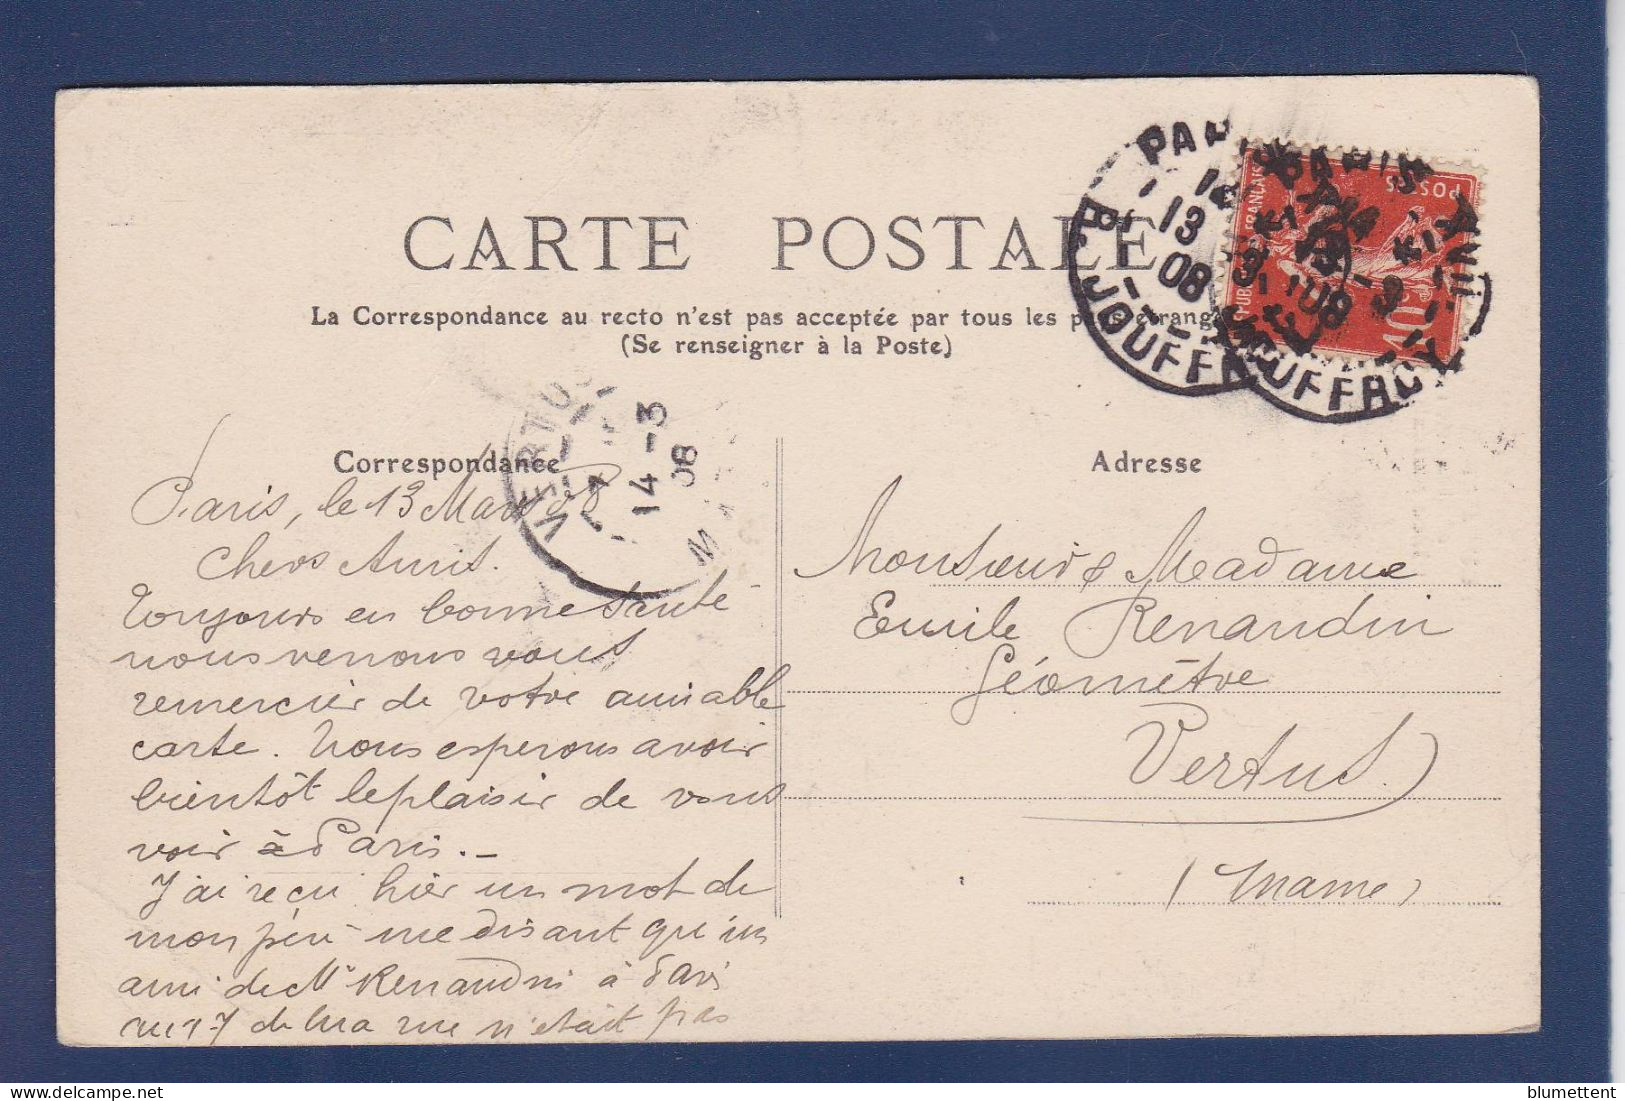 CARTE POSTALE
La Correspondance au recto n'est pas acceptée par tous les pays étrang
(Se renseigner à la Poste)
PARIS
13
08
R. JOUFFROY
POSTES
10c
VERTUS
7
14 -3
08
Correspondance
Adresse
Paris, le 13 Mars 08
Chers Amis.
Toujours en bonne santé
nous venons vous
remercier de votre aimable
carte. Nous esperons avoir
bientôt le plaisir de vous
voir à Paris.
J'ai reçu hier un mot de
mon père me disant qu'un
ami de Mr Renaudin à Paris
au 17 de ma rue n'etait pas
Monsieur & Madame
Emile Renaudin
Géomètre
Vertus
(Marne)
blumettent